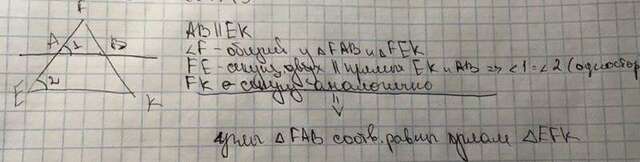 F
A 1 B
2
E K
AB || EK
∠F - общий у △FAB и △FEK
FE - секущ. двух || прямых EK и AB => ∠1=∠2 (одностор
FK - секущ аналогично
⇓
углы △FAB соотв. равны углам △EFK